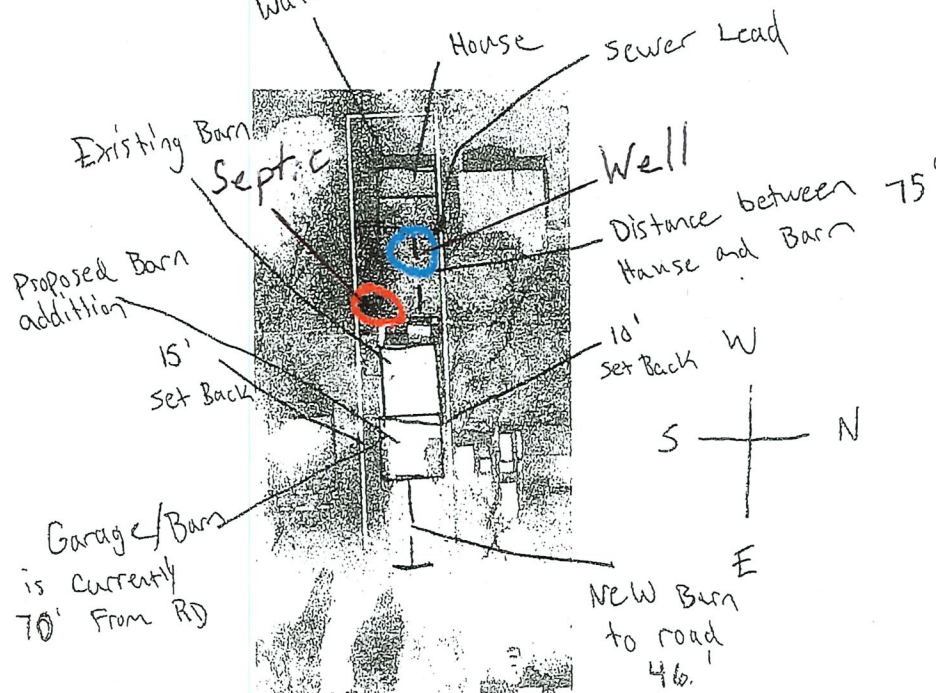 House
Sewer Lead
Existing Barn
Septic
Well
Distance between 75'
House and Barn
Proposed Barn
addittion
15'
Set Back
10'
Set Back
W
S
N
E
Garage/Barn
is currently
70' From RD
New Barn
to road
46.'